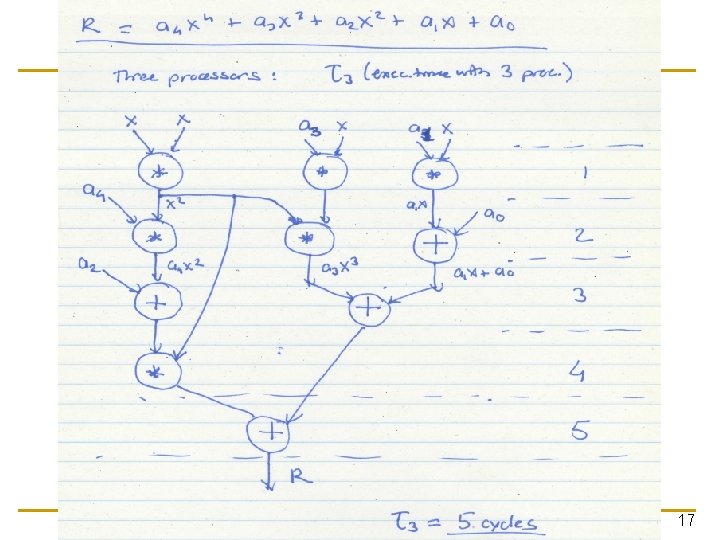 R = a₄x⁴ + a₃x³ + a₂x² + a₁x + a₀
Three processors : T₃ (exec. time with 3 proc.)
x x a₃ x a₁ x
* * * 1
a₄ x² a₁x a₀
* * + 2
a₂ a₄x² a₃x³ a₁x + a₀
+ + 3
* 4
+ 5
R
T₃ = 5 cycles
17